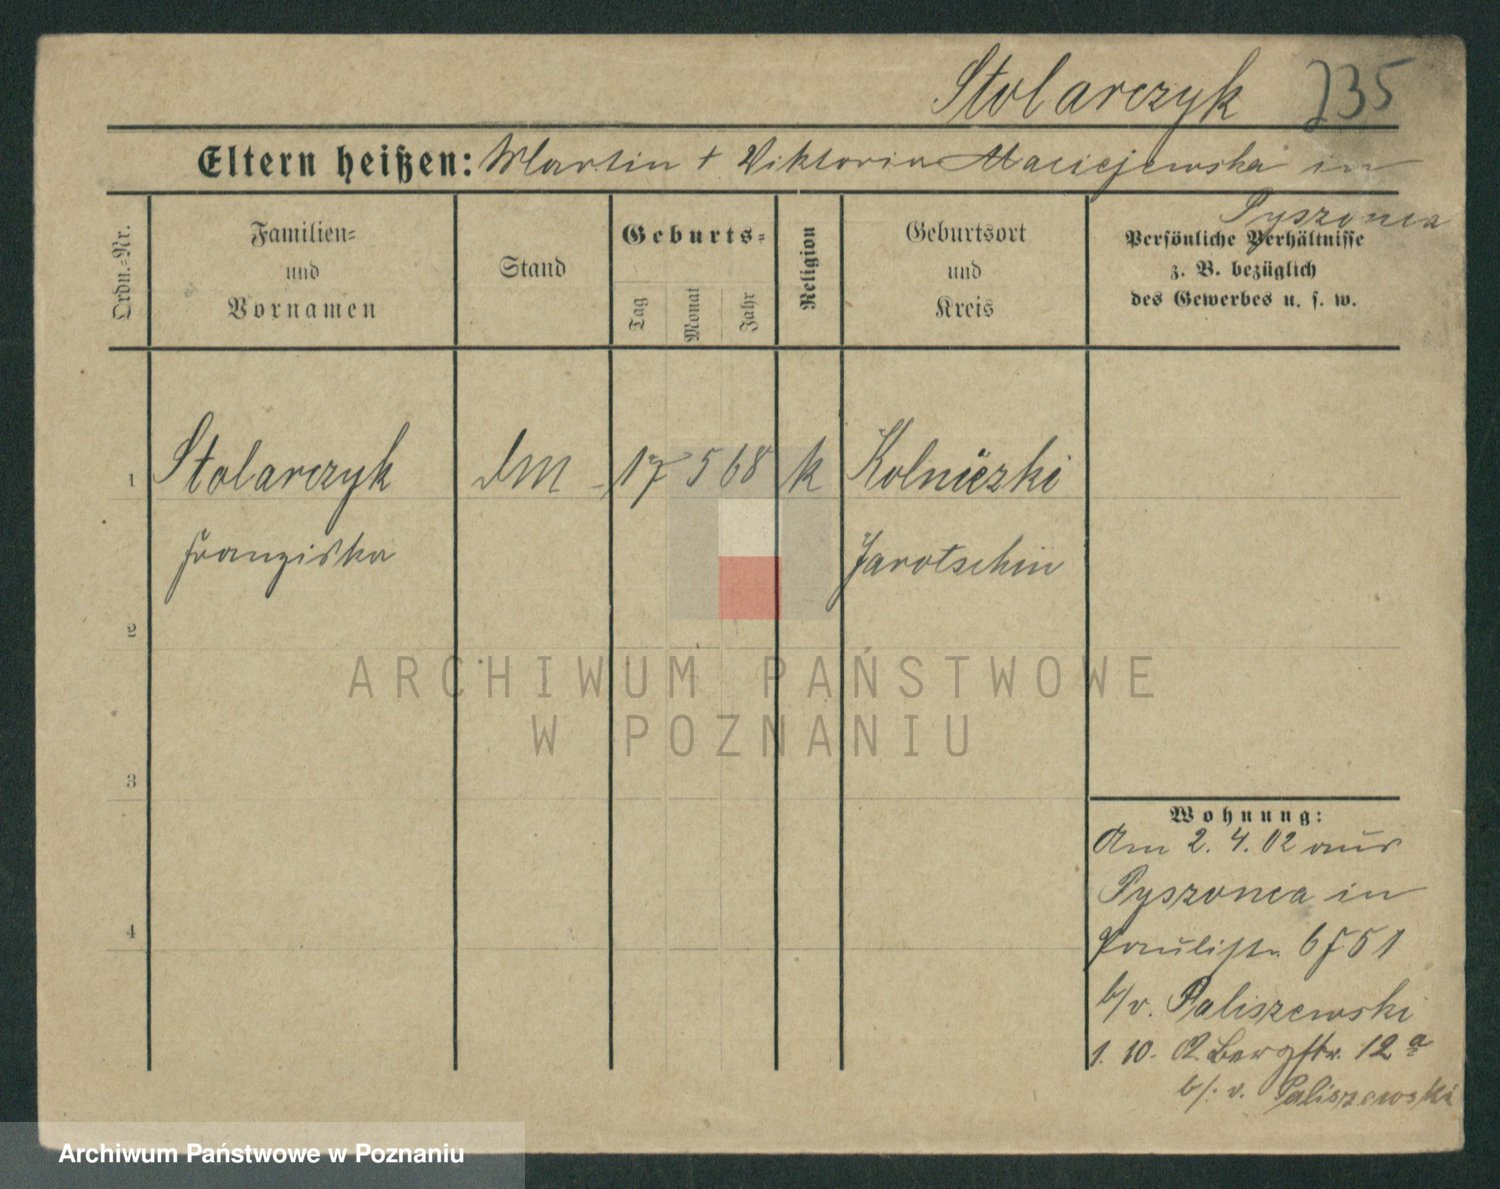 Stolarczyk 735
Eltern heißen: Martin + Viktoria Maciejewska in
Pyszonca
Ordn.-Nr.
Familien-
und
Vornamen
Stand
Geburts-
Tag
Monat
Jahr
Religion
Geburtsort
und
Kreis
Persönliche Verhältnisse
z. B. bezüglich
des Gewerbes u. s. w.
1 Stolarczyk dM 17 5 68 k Kolniczki
Franziska Jarotschin
2
ARCHIWUM PAŃSTWOWE
W POZNANIU
3
Wohnung:
Am 2. 4. 02 aus
Pyszonca in
4
Paulistr.
b/v. Paliszewski
1. 10. 02 Bergstr. 12a
b/. v. Paliszewski
Archiwum Państwowe w Poznaniu